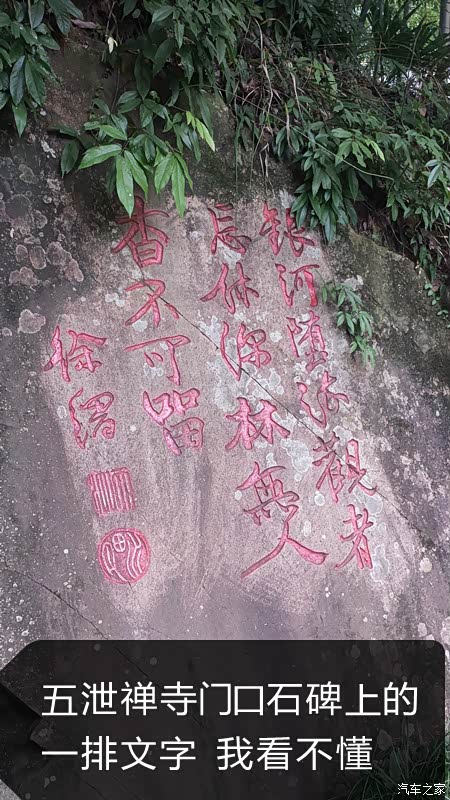 銀河堕流觀者
忘休深林無人
杳不可留
徐渭
五泄禅寺门口石碑上的
一排文字 我看不懂
汽车之家